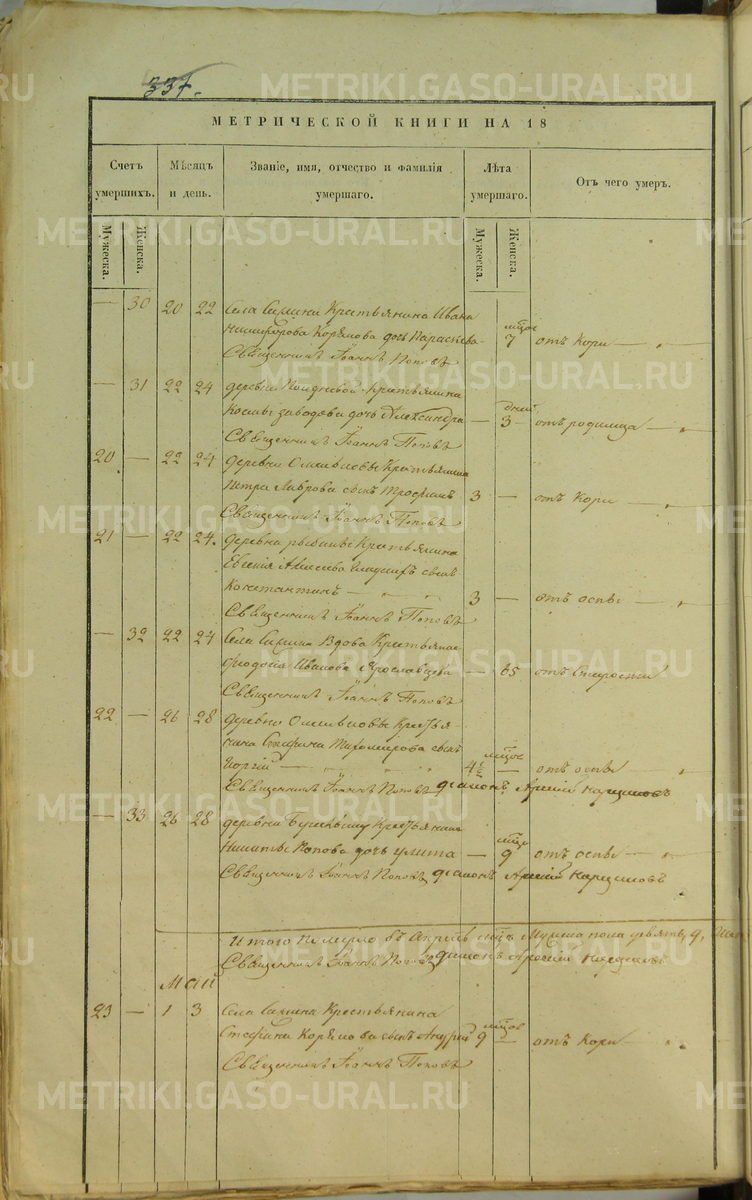 337.
МЕТРИЧЕСКОЙ КНИГИ НА 18
Счетъ умершихъ.
Мѣсяцъ и день.
Званіе, имя, отчество и фамилія умершаго.
Лѣта умершаго.
Отъ чего умеръ.
Мужеска.
Женска.
Мужеска.
Женска.
— 30 20 22 Села Крестьянина Ивана
Никифорова дочь Параскева мѣсяц 7 отъ Кори
Священникъ Іоаннъ Поповъ
— 31 22 24 деревни Крестьянина
Косьмы Заводова дочь Александра — дней 3 отъ родимца
Священникъ Іоаннъ Поповъ
20 — 22 24 деревни Крестьянина
Петра Лаврова сынъ Трофимъ 3 — отъ Кори
Священникъ Іоаннъ Поповъ
21 — 22 24. деревни Крестьянина
Евгенія сынъ
Константинъ 3 — отъ оспы
Священникъ Іоаннъ Поповъ
— 32 22 24 Села Вдова Крестьянская
Феодосія Иванова Ярославцева — 65 отъ Старости
Священникъ Іоаннъ Поповъ
22 — 26 28 деревни Крестья-
нина Стефана Тихомирова сынъ
Георгій 4½ мѣсяц — отъ оспы
Священникъ Іоаннъ Поповъ діаконъ
— 33 26 28 деревни Крестьянина
Никиты Попова дочь Улита — мѣсяц 9 отъ оспы
Священникъ Іоаннъ Поповъ діаконъ
Итого померло въ Апрѣлѣ мѣсяцѣ Мужеска пола девять, 9,
Священникъ Іоаннъ Поповъ діаконъ
Маій
23 — 1 3 Села Крестьянина
Стефана сынъ Андрей 9 мѣсяцов — отъ Кори
Священникъ Іоаннъ Поповъ
METRIKI.GASO-URAL.RU
METRIKI.GASO-URAL.RU
METRIKI.GASO-URAL.RU
METRIKI.GASO-URAL.RU
METRIKI.GASO-URAL.RU
METRIKI.GASO-URAL.RU
METRIKI.GASO-URAL.RU
METRIKI.GASO-URAL.RU